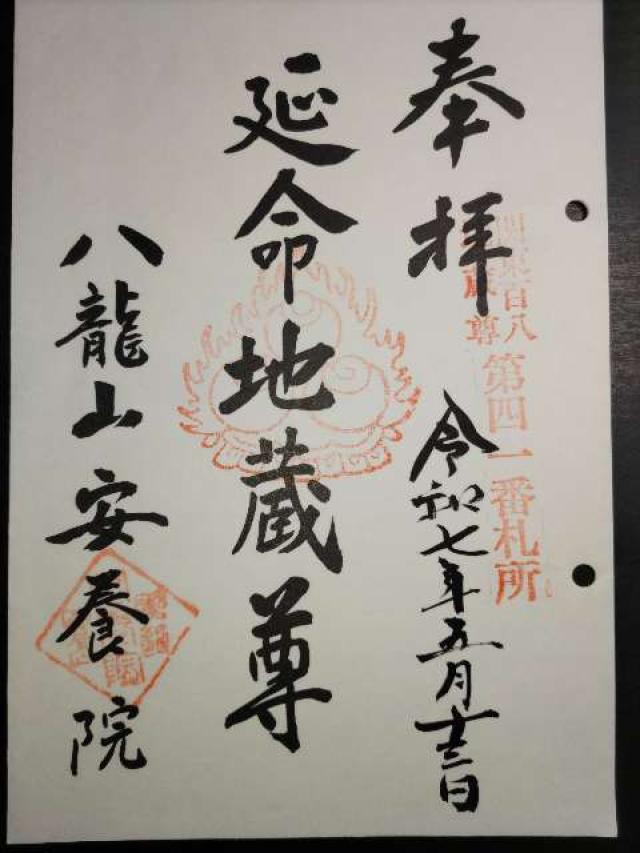 奉拝
百八
蔵尊
第四一番札所
令和七年五月十三日
延命地蔵尊
八龍山安養院